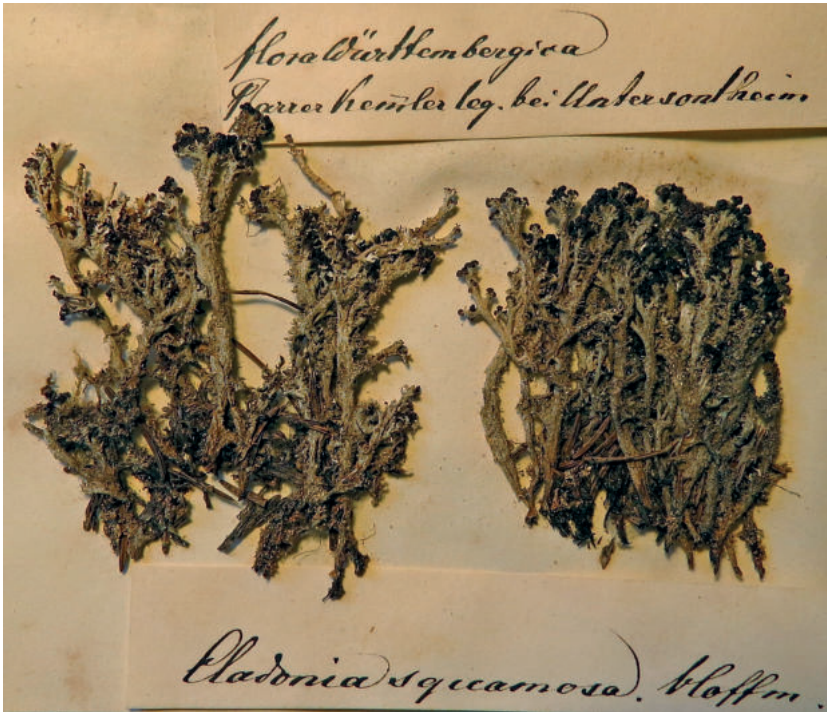 flora Württembergica
Pfarrer Kemler leg. bei Untersontheim
Cladonia squamosa. Hoffm.